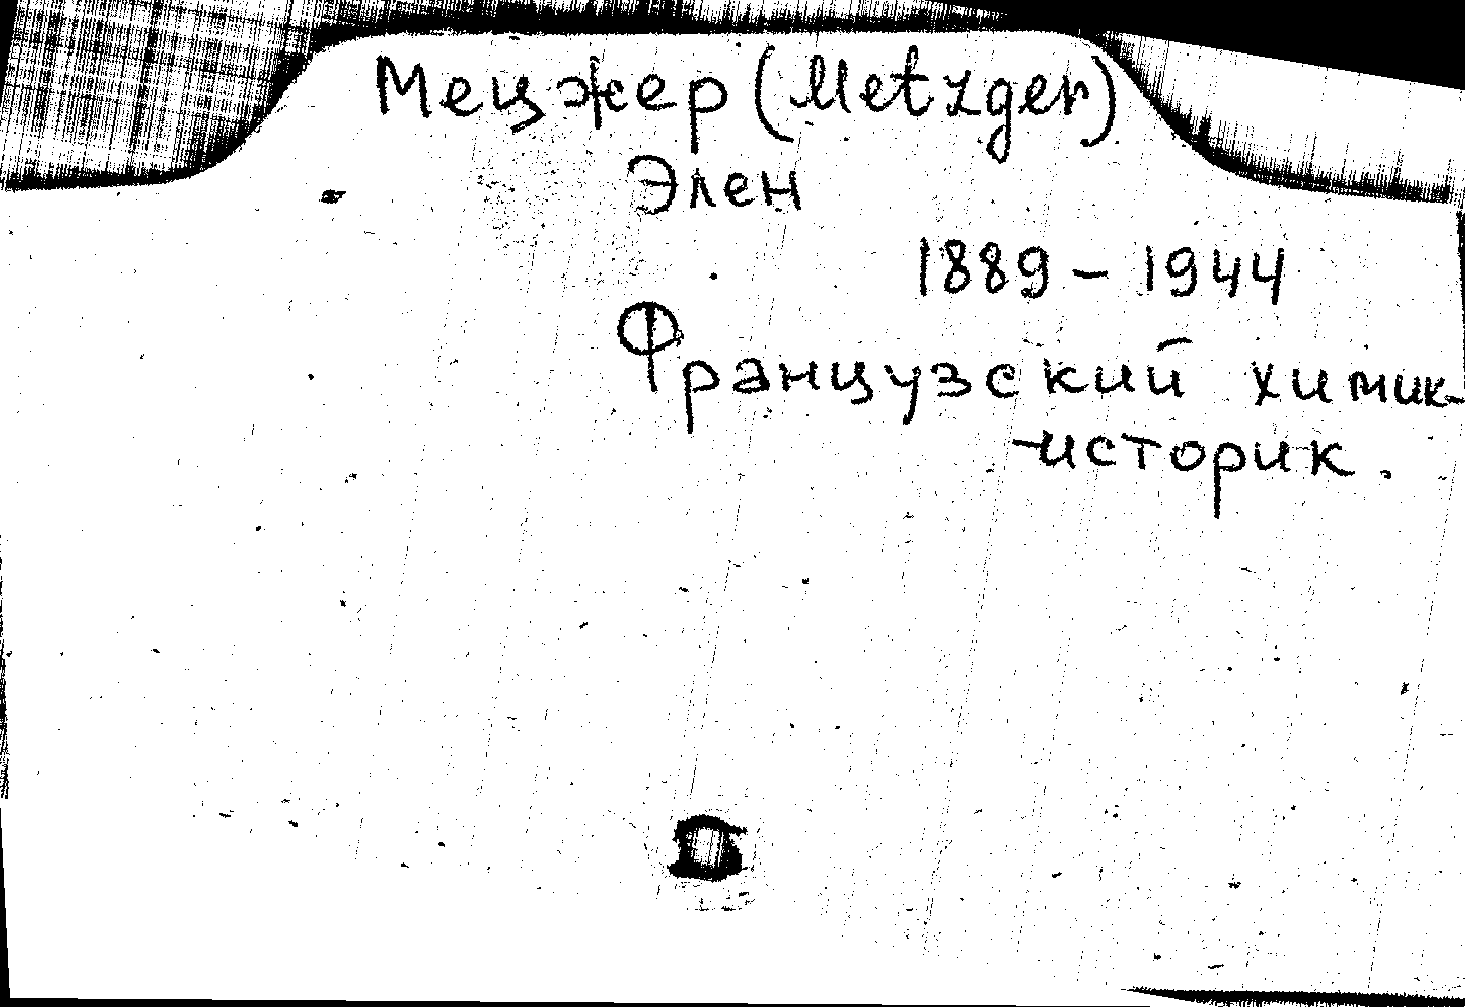 Мецжер (Metzger)
Элен
1889 - 1944
Французский химик-
-историк.